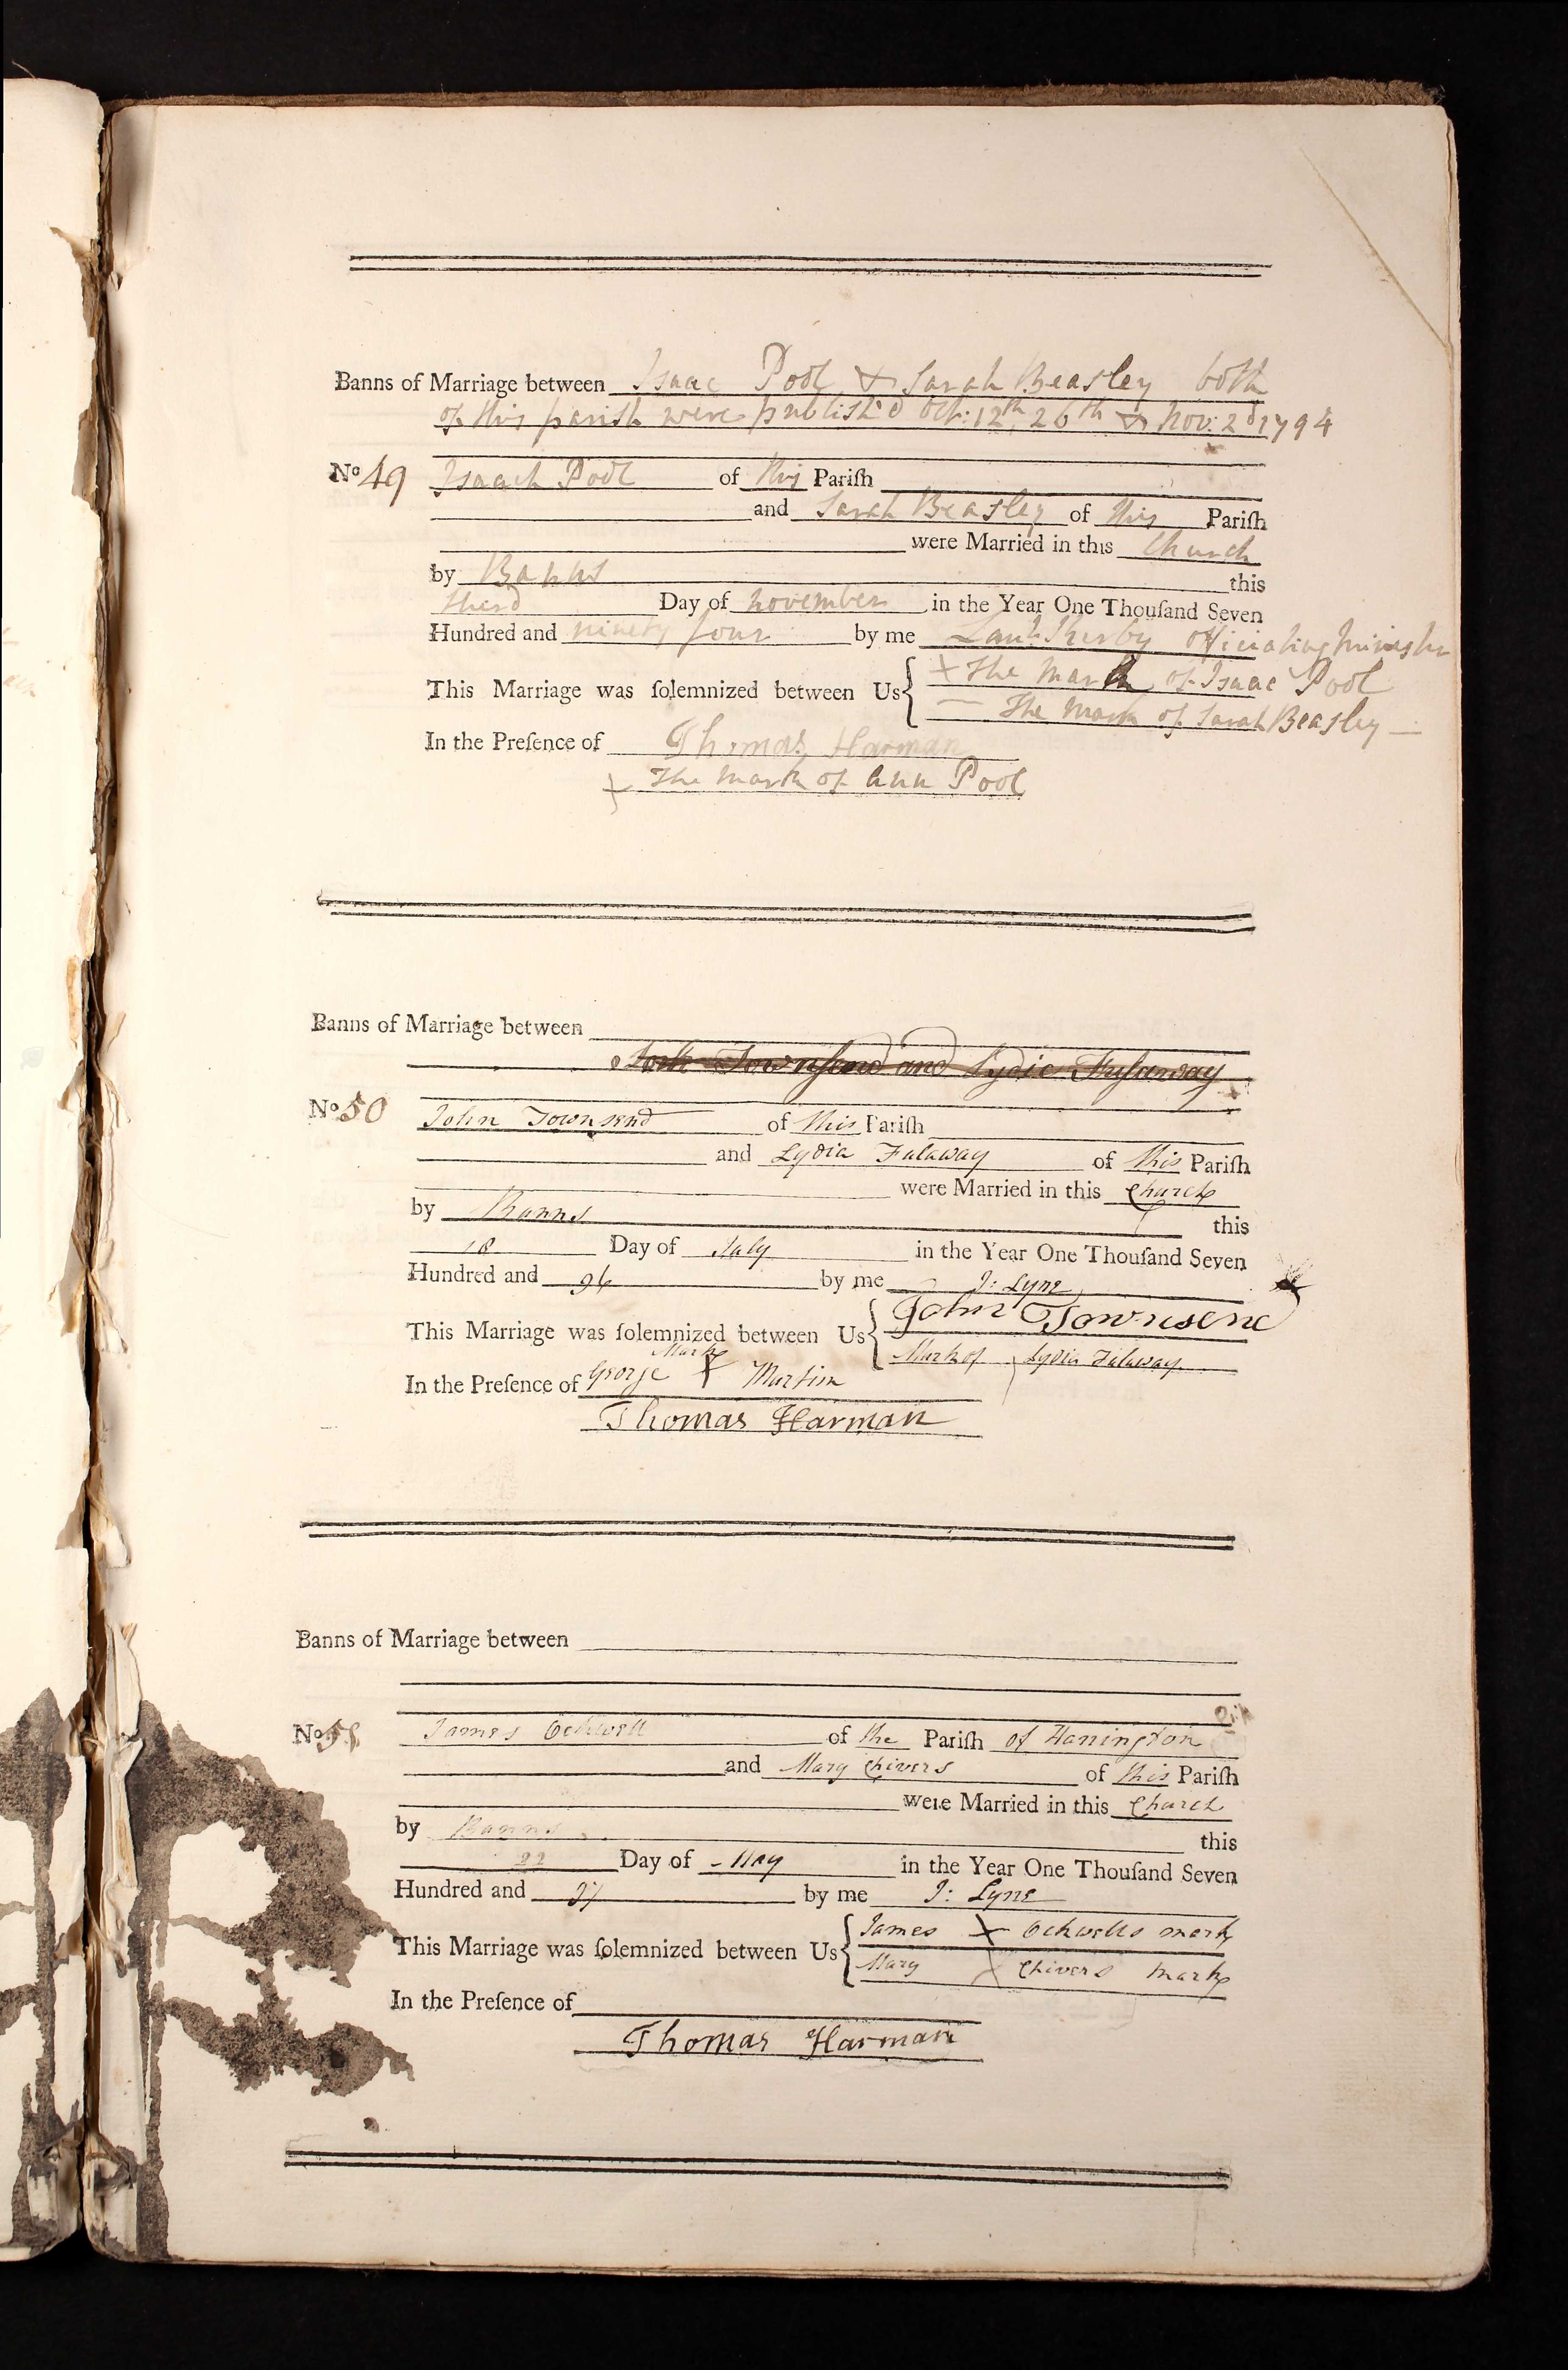 Banns of Marriage between Isaac Pool & Sarah Beasley both
of this parish were publish'd Oct: 12th, 26th & Nov: 2d 1794
No 49 Isaach Pool of this Pariſh
and Sarah Beasley of this Pariſh
were Married in this Church
by Banns this
therd Day of november in the Year One Thouſand Seven
Hundred and ninety four by me Officiating Minister
This Marriage was ſolemnized between Us { X The Mark of Isaac Pool
— The Mark of Sarah Beasley —
In the Preſence of Thomas Harman
X The Mark of Ann Pool
Banns of Marriage between
Townsend and Lydia
No 50 John Townsend of this Pariſh
and Lydia Falaway of this Pariſh
were Married in this Church
by Banns this
18 Day of July in the Year One Thouſand Seven
Hundred and 96 by me J: Lyne
This Marriage was ſolemnized between Us { John Townsend
Mark of Lydia Falaway
Mark
In the Preſence of George X Martin
Thomas Harman
Banns of Marriage between
No 51 James Ockwell of the Pariſh of Hanington
and Mary Chivers of this Pariſh
were Married in this Church
by Banns this
22 Day of May in the Year One Thouſand Seven
Hundred and 97 by me J: Lyne
This Marriage was ſolemnized between Us { James X Ockwells mark
Mary X Chivers mark
In the Preſence of
Thomas Harman